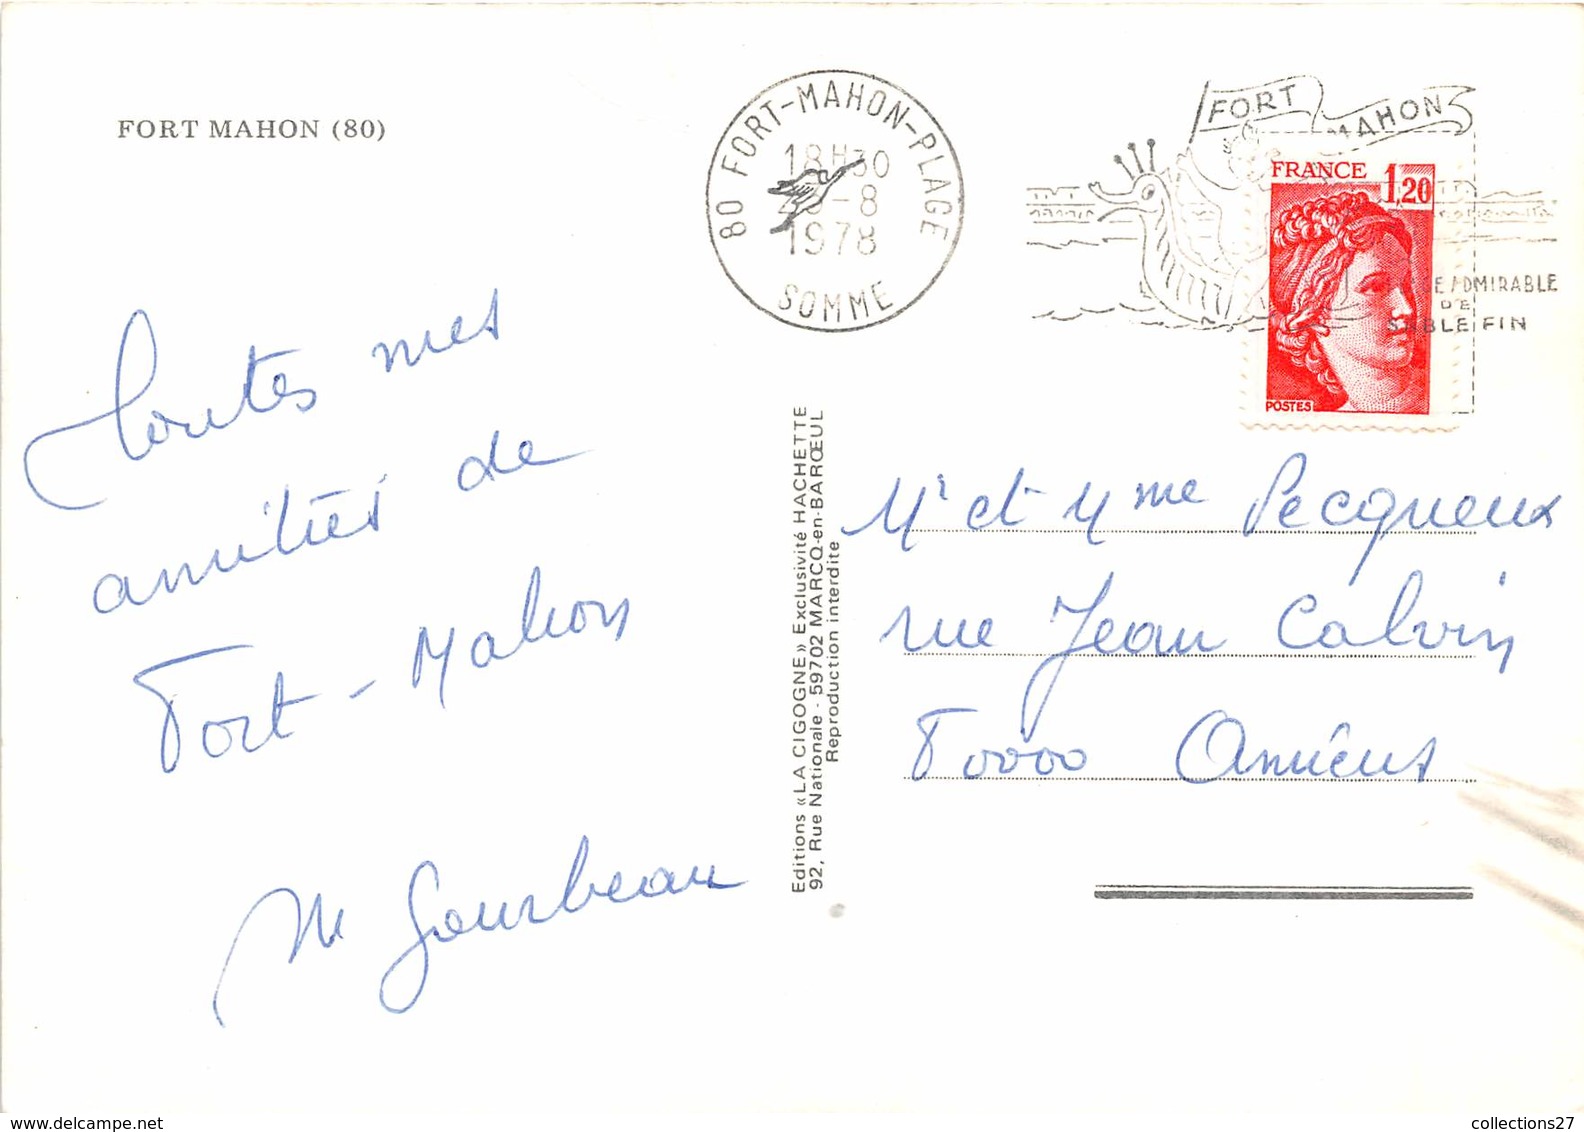 FORT MAHON (80)
Toutes mes
amitiés de
Fort-Mahon
M Gourbeau
Editions «LA CIGOGNE» Exclusivité HACHETTE
92, Rue Nationale - 59702 MARCQ-en-BARŒUL
Reproduction interdite
80 FORT-MAHON-PLAGE
18H30
-8
1978
SOMME
FORT MAHON
ADMIRABLE
DE
SABLE FIN
FRANCE 1,20
POSTES
Mr et Mme Pecqueux
rue Jean Calvin
80000 Amiens
collections27